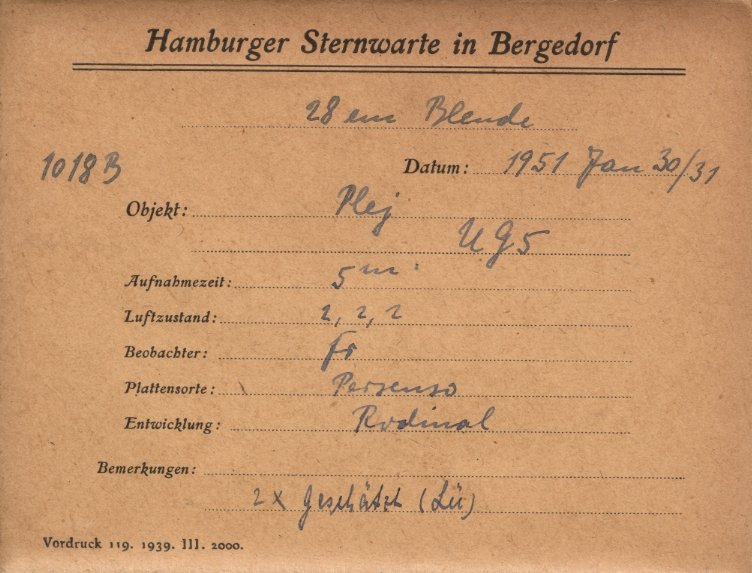 Hamburger Sternwarte in Bergedorf
28 cm Blende
1018 B Datum: 1951 Jan 30/31
Objekt: Plej
UG5
Aufnahmezeit: 5 m
Luftzustand: 2, 2, 2
Beobachter: Fr
Plattensorte: Persenso
Entwicklung: Rodinal
Bemerkungen:
2 x geschätzt (Lü)
Vordruck 119. 1939. III. 2000.